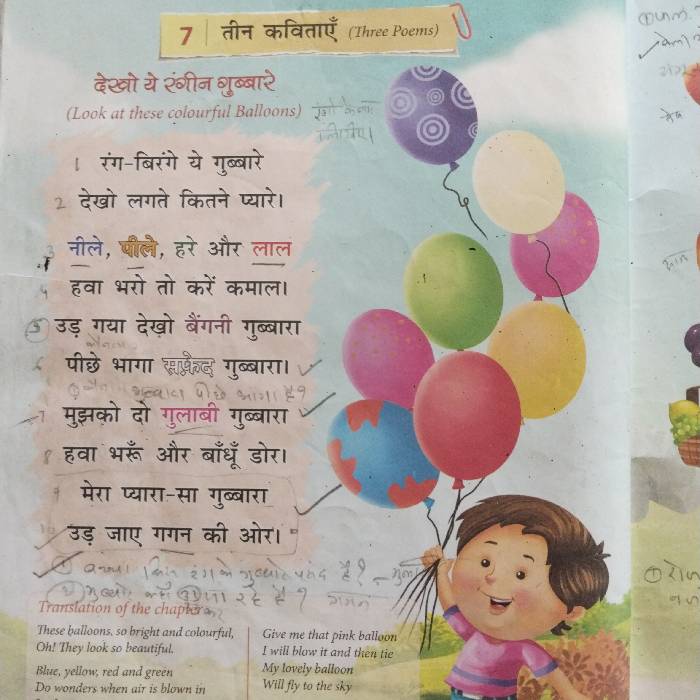 7 तीन कविताएँ (Three Poems)
देखो ये रंगीन गुब्बारे
(Look at these colourful Balloons)
1 रंग-बिरंगे ये गुब्बारे
2 देखो लगते कितने प्यारे।
3 नीले, पीले, हरे और लाल
4 हवा भरो तो करें कमाल।
5 उड़ गया देखो बैंगनी गुब्बारा
6 पीछे भागा सफ़ेद गुब्बारा।
गुब्बारा पीछे भागा है?
7 मुझको दो गुलाबी गुब्बारा
8 हवा भरूँ और बाँधूँ डोर।
9 मेरा प्यारा-सा गुब्बारा
10 उड़ जाए गगन की ओर।
Translation of the chapter
These balloons, so bright and colourful,
Oh! They look so beautiful.
Blue, yellow, red and green
Do wonders when air is blown in
Give me that pink balloon
I will blow it and then tie
My lovely balloon
Will fly to the sky